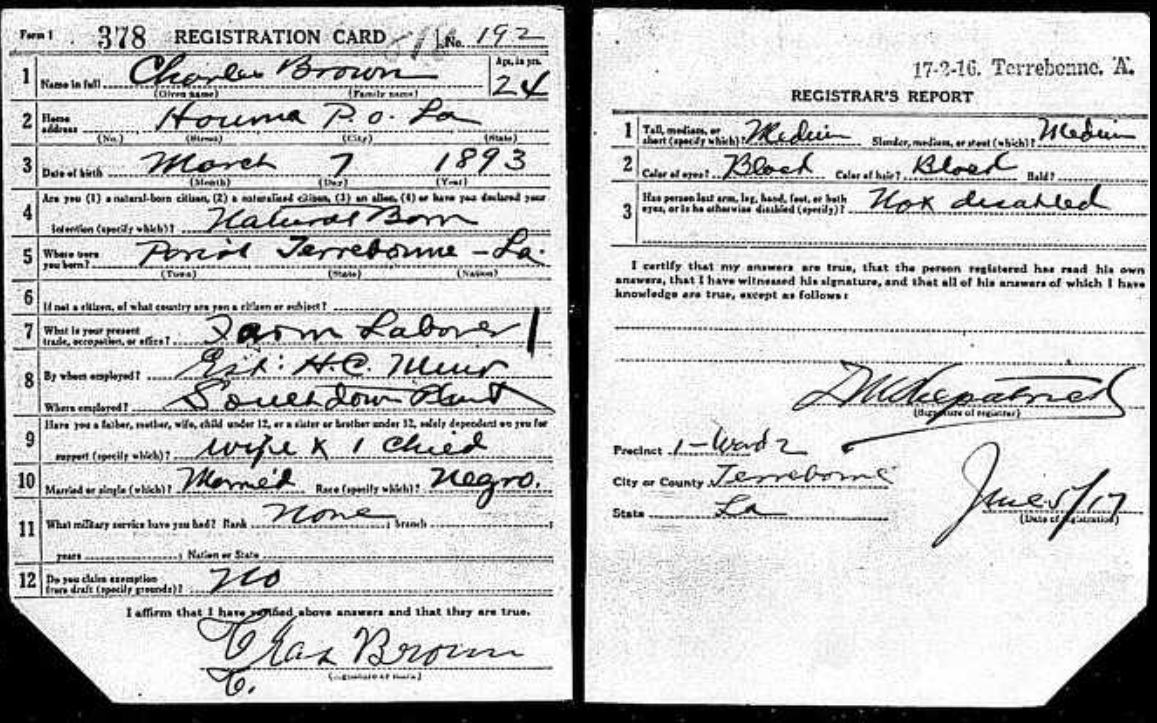 Form 1 378 REGISTRATION CARD No. 192
1 Name in full Charles Brown Age, in yrs. 24
(Given name) (Family name)
2 Home address Houma P.O. La
(No.) (Street) (City) (State)
3 Date of birth March 7 1893
(Month) (Day) (Year)
4 Are you (1) a natural-born citizen, (2) a naturalized citizen, (3) an alien, (4) or have you declared your
intention (specify which)? Natural Born
5 Where were you born? Parish Terrebonne - La.
(Town) (State) (Nation)
6 If not a citizen, of what country are you a citizen or subject?
7 What is your present trade, occupation, or office? Farm Laborer 1
8 By whom employed? Est: H.C. Minor
Where employed? Southdown Plant
9 Have you a father, mother, wife, child under 12, or a sister or brother under 12, solely dependent on you for
support (specify which)? wife & 1 child
10 Married or single (which)? Married Race (specify which)? Negro.
11 What military service have you had? Rank None ; branch ;
years ; Nation or State
12 Do you claim exemption from draft (specify grounds)? No
I affirm that I have verified above answers and that they are true.
Chas Brown
(Signature or mark)
17-2-16. Terrebonne. A.
REGISTRAR'S REPORT
1 Tall, medium, or short (specify which)? Medium Slender, medium, or stout (which)? Medium
2 Color of eyes? Black Color of hair? Black Bald?
3 Has person lost arm, leg, hand, foot, or both eyes, or is he otherwise disabled (specify)? Not disabled
I certify that my answers are true, that the person registered has read his own
answers, that I have witnessed his signature, and that all of his answers of which I have
knowledge are true, except as follows:
(Signature of registrar)
Precinct 1-Ward 2
City or County Terrebonne
State La
June 5/17
(Date of registration)